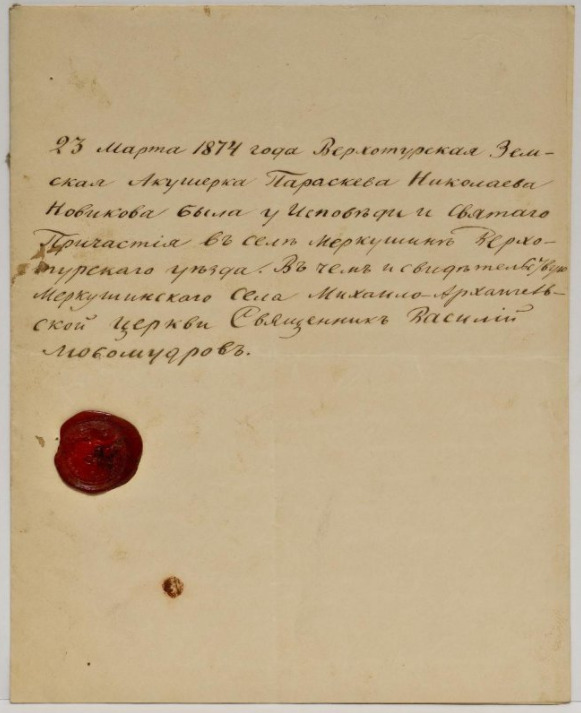 23 Марта 1874 года Верхотурская Зем-
ская Акушерка Параскева Николаева
Новикова была у Исповѣди и Святаго
Причастія въ селѣ Меркушинѣ Верхо-
турскаго уѣзда. Въ чемъ и свидѣтельствую
Меркушинскаго села Михаило-Архангель-
ской церкви Священникъ Василій
Любомудровъ.